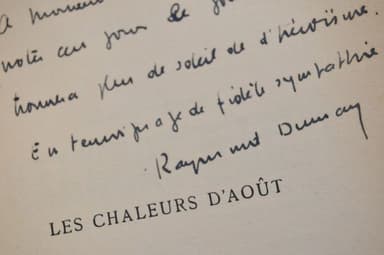 A Monsieur
notés ces jours de
trouvera plus de soleil de d'héroïsme.
En témoignage de fidèle sympathie
Raymond Dumay
LES CHALEURS D'AOÛT